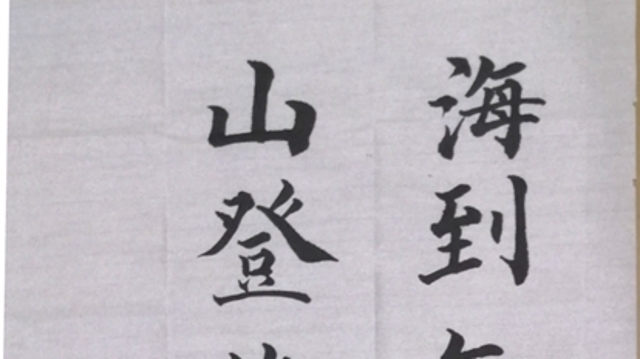 海到
山登